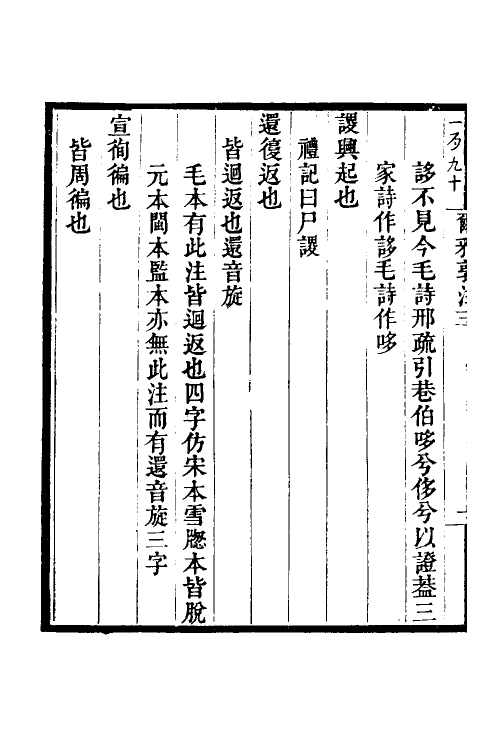 爾雅郭注三
誃不見今毛詩邢疏引巷伯哆兮侈兮以證葢三
家詩作誃毛詩作哆
謖興起也
禮記曰尸謖
還復返也
皆迴返也還音旋
毛本有此注皆迴返也四字仿宋本雪牕本皆脫
元本閩本監本亦無此注而有還音旋三字
宣徇徧也
皆周徧也